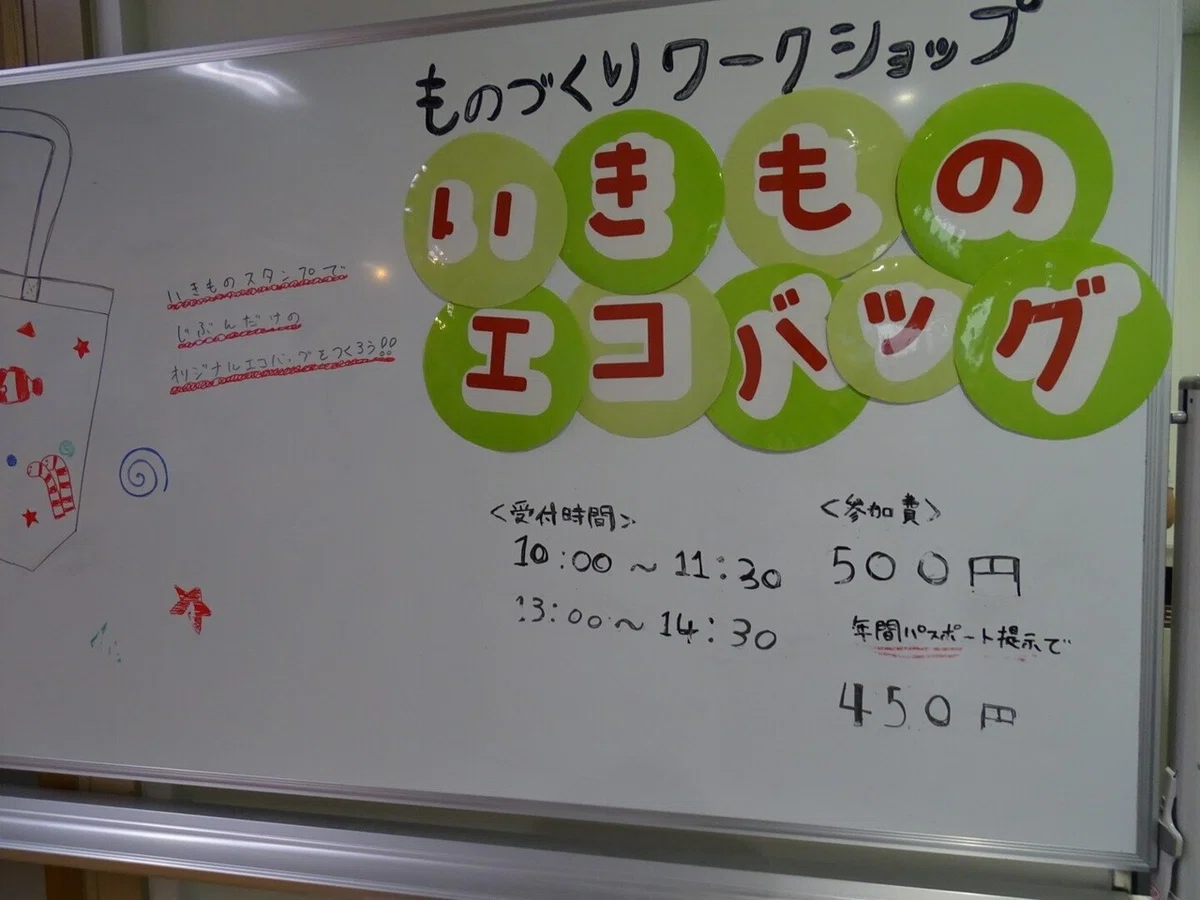 ものづくりワークショップ
いきもの
エコバッグ
いきものスタンプで
じぶんだけの
オリジナルエコバッグをつくろう!!
<受付時間>
10:00~11:30
13:00~14:30
<参加費>
500円
年間パスポート提示で
450円